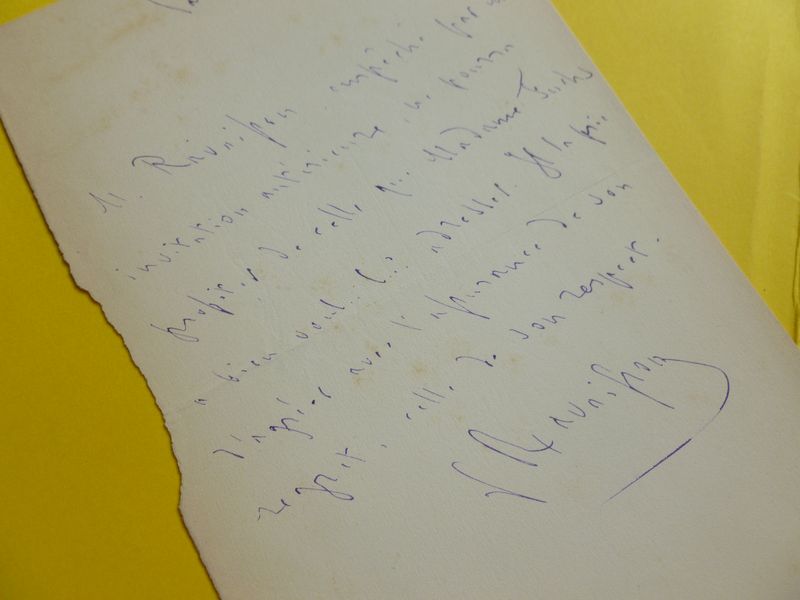 M. Ravaisson, empêché par
invitation antérieure, ne pourra
profiter de celle que Madame
a bien voulu lui adresser. Il la prie
d'agréer avec l'assurance de son
regret, celle de son respect.
Ravaisson